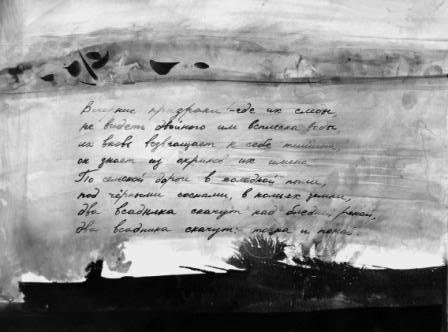 Виденье призраки! — где их смог,
не видеть двойного им всплеска воды,
их вновь возвращает к себе тишина
он знает из окрика их имена
По сельской дороге в холодной пыли,
под чёрными соснами, в комьях земли,
два всадника скачут над бледной рекой,
два всадника скачут: тоска и покой.